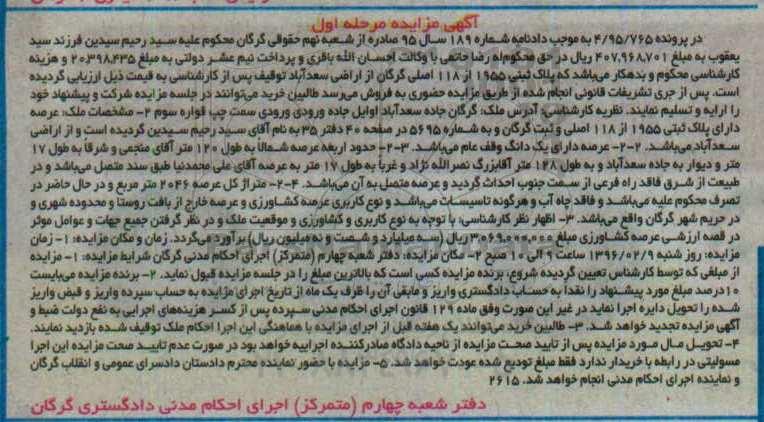 آگهی مزایده مرحله اول
در پرونده ۴/۹۵/۷۶۵ به موجب دادنامه شماره ۱۸۹ سال ۹۵ صادره از شعبه نهم حقوقی گرگان محکوم علیه سید رحیم سیدین فرزند سید
یعقوب به مبلغ ۴۰۷,۹۶۸,۷۰۱ ریال در حق محکوم‌له رضا حاتمی با وکالت احسان الله باقری و پرداخت نیم عشر دولتی به مبلغ ۲۰,۳۹۸,۴۳۵ و هزینه
کارشناسی محکوم و بدهکار می‌باشد که پلاک ثبتی ۱۹۵۵ از ۱۱۸ اصلی گرگان از اراضی سعدآباد توقیف پس از کارشناسی به قیمت ذیل ارزیابی گردیده
است. پس از جری تشریفات قانونی انجام شده از طریق مزایده حضوری به فروش می‌رسد طالبین خرید می‌توانند در جلسه مزایده شرکت و پیشنهاد خود
را ارایه و تسلیم نمایند. نظریه کارشناسی: آدرس ملک: گرگان جاده سعدآباد اوایل جاده ورودی ورودی سمت چپ قواره سوم ۲- مشخصات ملک: عرصه
دارای پلاک ثبتی ۱۹۵۵ از ۱۱۸ اصلی و ثبت گرگان و به شماره ۵۶۹۵ در صفحه ۴۰ دفتر ۳۵ به نام آقای سید رحیم سیدین گردیده است و از اراضی
سعدآباد می‌باشد. ۲-۲- عرصه دارای یک دانگ وقف عام می‌باشد. ۳-۲- حدود اربعه عرصه شمالاً به طول ۱۲۰ متر آقای منجمی و شرقا به طول ۱۷
متر و دیوار به جاده سعدآباد و به طول ۱۲۸ متر آقابزرگ نصرالله نژاد و غرباً به طول ۱۷ متر به عرصه آقای علی محمدنیا طبق سند متصل می‌باشد و در
طبیعت از شرق فاقد راه فرعی از سمت جنوب احداث گردید و عرصه متصل به آن می‌باشد. ۴-۲- متراژ کل عرصه ۲۰۴۶ متر مربع و در حال حاضر در
تصرف محکوم علیه می‌باشد و فاقد چاه آب و هرگونه تاسیسات می‌باشد و نوع کاربری عرصه کشاورزی و عرصه خارج از بافت روستا و محدوده شهری و
در حریم شهر گرگان واقع می‌باشد. ۳- اظهار نظر کارشناسی: با توجه به نوع کاربری و کشاورزی و موقعیت ملک و در نظر گرفتن جمیع جهات و عوامل موثر
در قصه ارزشی عرصه کشاورزی مبلغ ۳,۰۶۹,۰۰۰,۰۰۰ ریال (سه میلیارد و شصت و نه میلیون ریال) برآورد می‌گردد. زمان و مکان مزایده: ۱- زمان
مزایده: روز شنبه ۱۳۹۶/۰۲/۹ ساعت ۹ الی ۱۰ صبح ۲- مکان مزایده: دفتر شعبه چهارم (متمرکز) اجرای احکام مدنی گرگان شرایط مزایده: ۱- مزایده
از مبلغی که توسط کارشناس تعیین گردیده شروع، برنده مزایده کسی است که بالاترین مبلغ را در جلسه مزایده قبول نماید. ۲- برنده مزایده می‌بایست
۱۰ درصد مبلغ مورد پیشنهاد را نقداً به حساب دادگستری واریز و مابقی آن را ظرف یک ماه از تاریخ اجرای مزایده به حساب سپرده واریز و قبض واریز
شده را تحویل دایره اجرا نماید در غیر این صورت وفق ماده ۱۲۹ قانون اجرای احکام مدنی سپرده پس از کسر هزینه‌های اجرایی به نفع دولت ضبط و
آگهی مزایده تجدید خواهد شد. ۳- طالبین خرید می‌توانند یک هفته قبل از اجرای مزایده با هماهنگی این اجرا احکام ملک توقیف شده بازدید نمایند.
۴- تحویل مال مورد مزایده پس از تایید صحت مزایده از ناحیه دادگاه صادرکننده اجراییه خواهد بود در صورت عدم تایید صحت مزایده این اجرا
مسولیتی در رابطه با خریدار ندارد فقط مبلغ تودیع شده عودت خواهد شد. ۵- مزایده با حضور نماینده محترم دادستان دادسرای عمومی و انقلاب گرگان
و نماینده اجرای احکام مدنی انجام خواهد شد. ۲۶۱۵
دفتر شعبه چهارم (متمرکز) اجرای احکام مدنی دادگستری گرگان